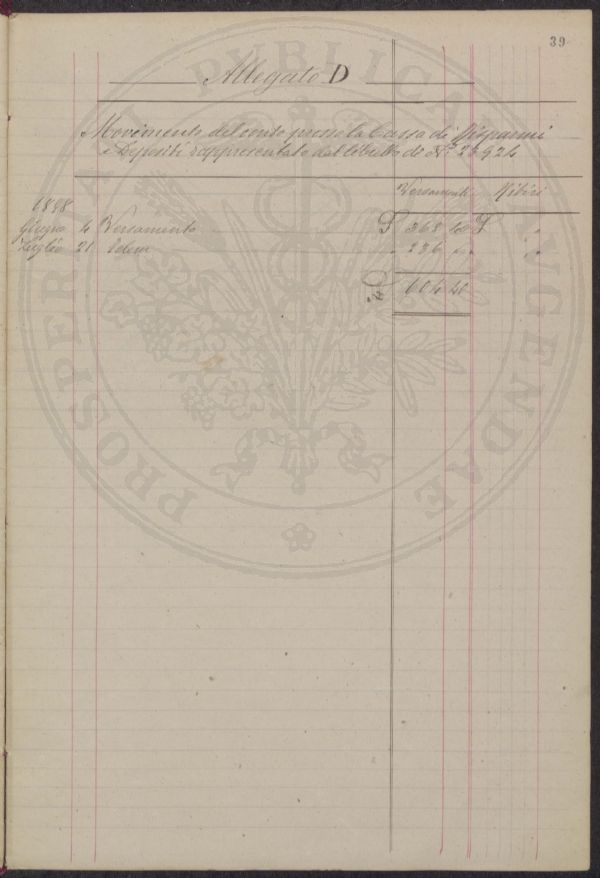 39
Allegato D
Movimento del conto presso la Cassa di Risparmi
e Depositi rappresentato dal libretto di N.º 28924
Versamenti Ritiri
1898
Giugno 4 Versamento £ 368 40 £ "
Luglio 21 Idem " 236 " " "
£ 604 40
PROSPERITATI PUBLICAE AUGENDAE